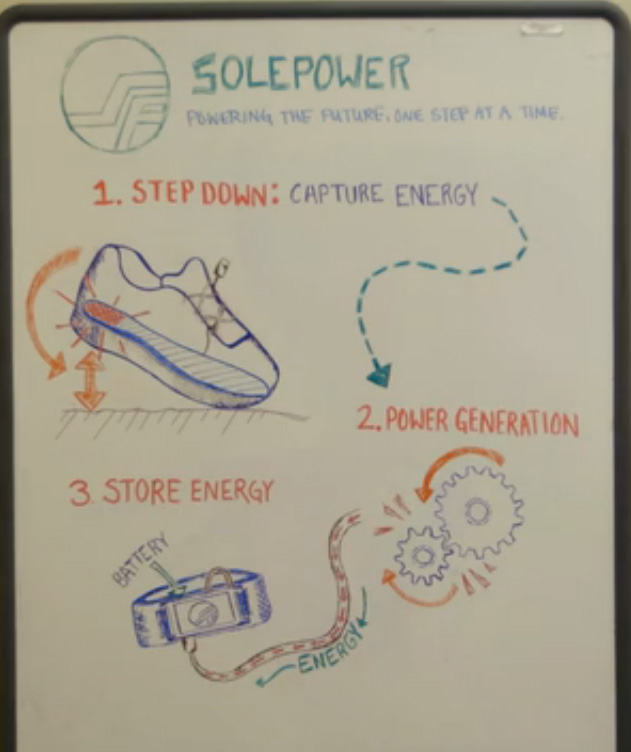 SOLEPOWER
POWERING THE FUTURE, ONE STEP AT A TIME.
1. STEP DOWN: CAPTURE ENERGY
2. POWER GENERATION
3. STORE ENERGY
BATTERY
ENERGY